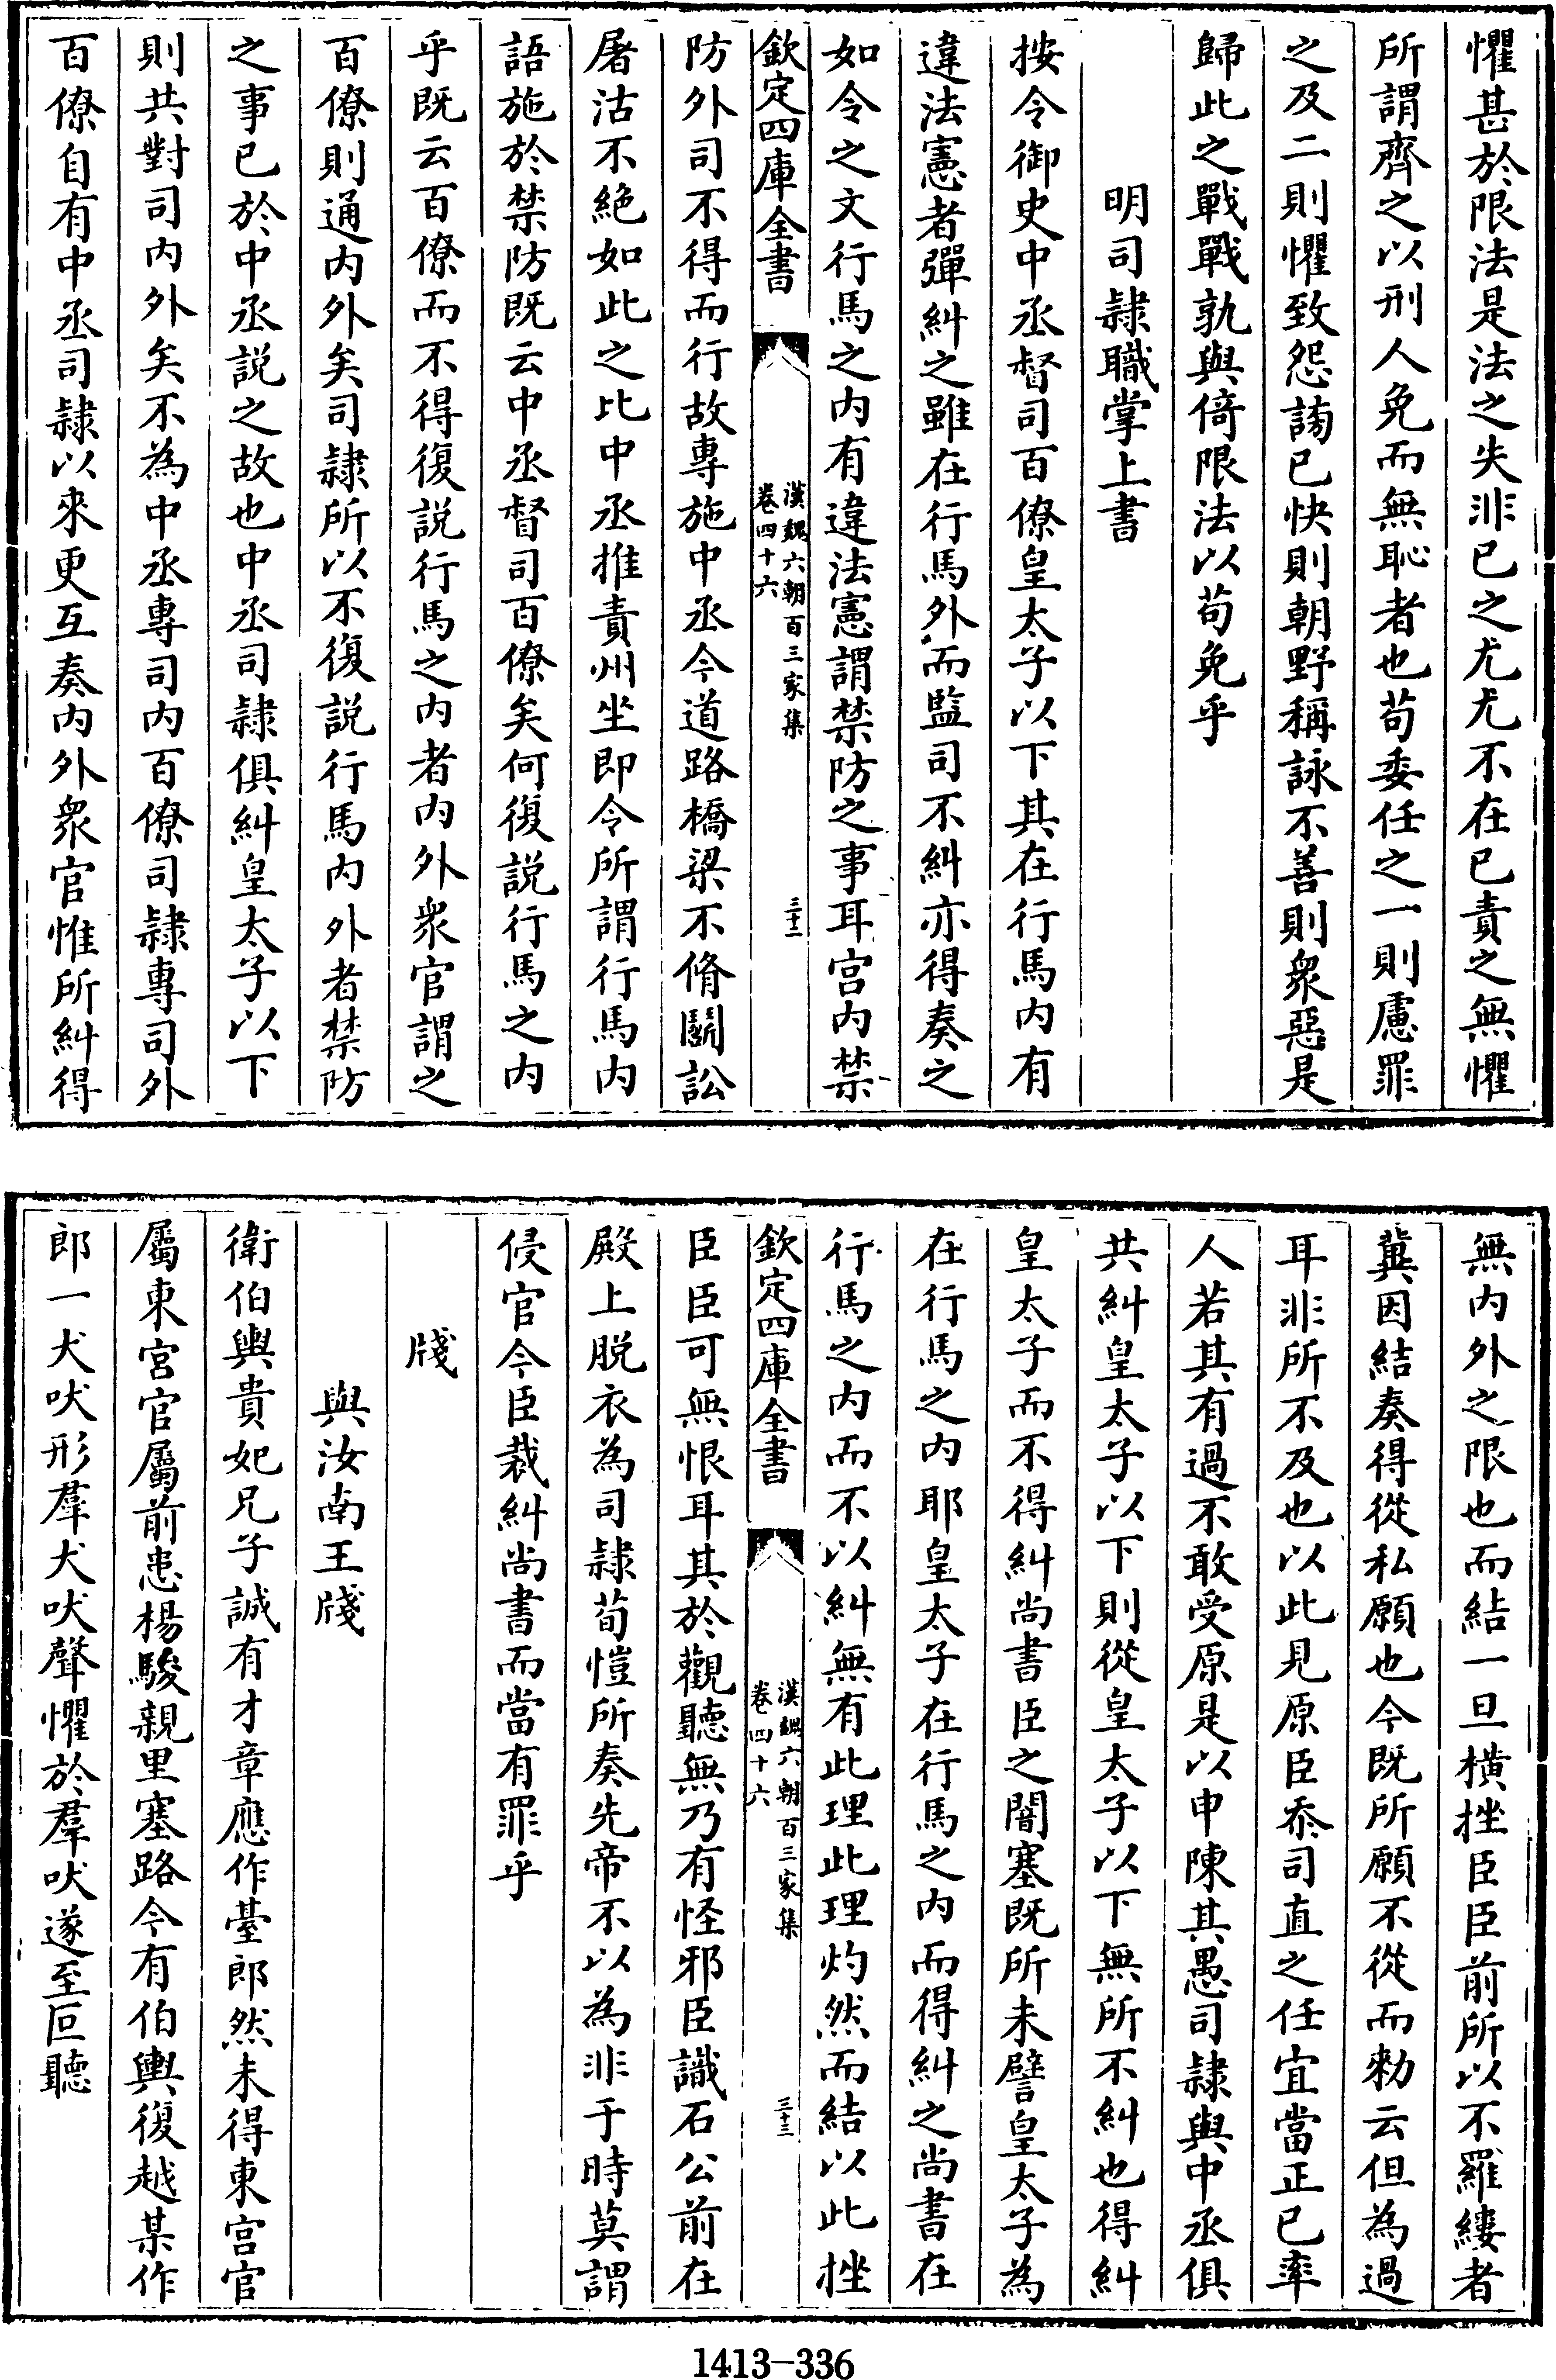 懼甚於限法是法之失非已之尤尤不在已責之無懼
所謂齊之以刑人免而無恥者也苟委任之一則慮罪
之及二則懼致怨謗已快則朝野稱詠不善則衆惡是
歸此之戰戰孰與倚限法以苟免乎
明司隷職掌上書
按令御史中丞督司百僚皇太子以下其在行馬内有
違法憲者彈糾之雖在行馬外而監司不糾亦得奏之
如令之文行馬之内有違法憲謂禁防之事耳宫内禁
欽定四庫全書
漢魏六朝百三家集
卷四十六
三十二
防外司不得而行故專施中丞今道路橋梁不脩鬬訟
屠沽不絶如此之比中丞推責州坐即令所謂行馬内
語施於禁防既云中丞督司百僚矣何復説行馬之内
乎既云百僚而不得復説行馬之内者内外衆官謂之
百僚則通内外矣司隷所以不復説行馬内外者禁防
之事已於中丞説之故也中丞司隷俱糾皇太子以下
則共對司内外矣不為中丞專司内百僚司隷專司外
百僚自有中丞司隷以來更互奏内外衆官惟所糾得
無内外之限也而結一旦横挫臣臣前所以不羅縷者
冀因結奏得從私願也今既所願不從而勅云但為過
耳非所不及也以此見原臣忝司直之任宜當正已率
人若其有過不敢受原是以申陳其愚司隷與中丞俱
共糾皇太子以下則從皇太子以下無所不糾也得糾
皇太子而不得糾尚書臣之闇塞既所未譬皇太子為
在行馬之内耶皇太子在行馬之内而得糾之尚書在
行馬之内而不以糾無有此理此理灼然而結以此挫
欽定四庫全書
漢魏六朝百三家集
卷四十六
三十三
臣臣可無恨耳其於觀聽無乃有怪邪臣識石公前在
殿上脱衣為司隷荀愷所奏先帝不以為非于時莫謂
侵官今臣裁糾尚書而當有罪乎
牋
與汝南王牋
衛伯輿貴妃兄子誠有才章應作臺郎然未得東宫官
屬東宫官屬前患楊駿親里塞路今有伯輿復越某作
郎一犬吠形羣犬吠聲懼於羣吠遂至叵聽
1413-336